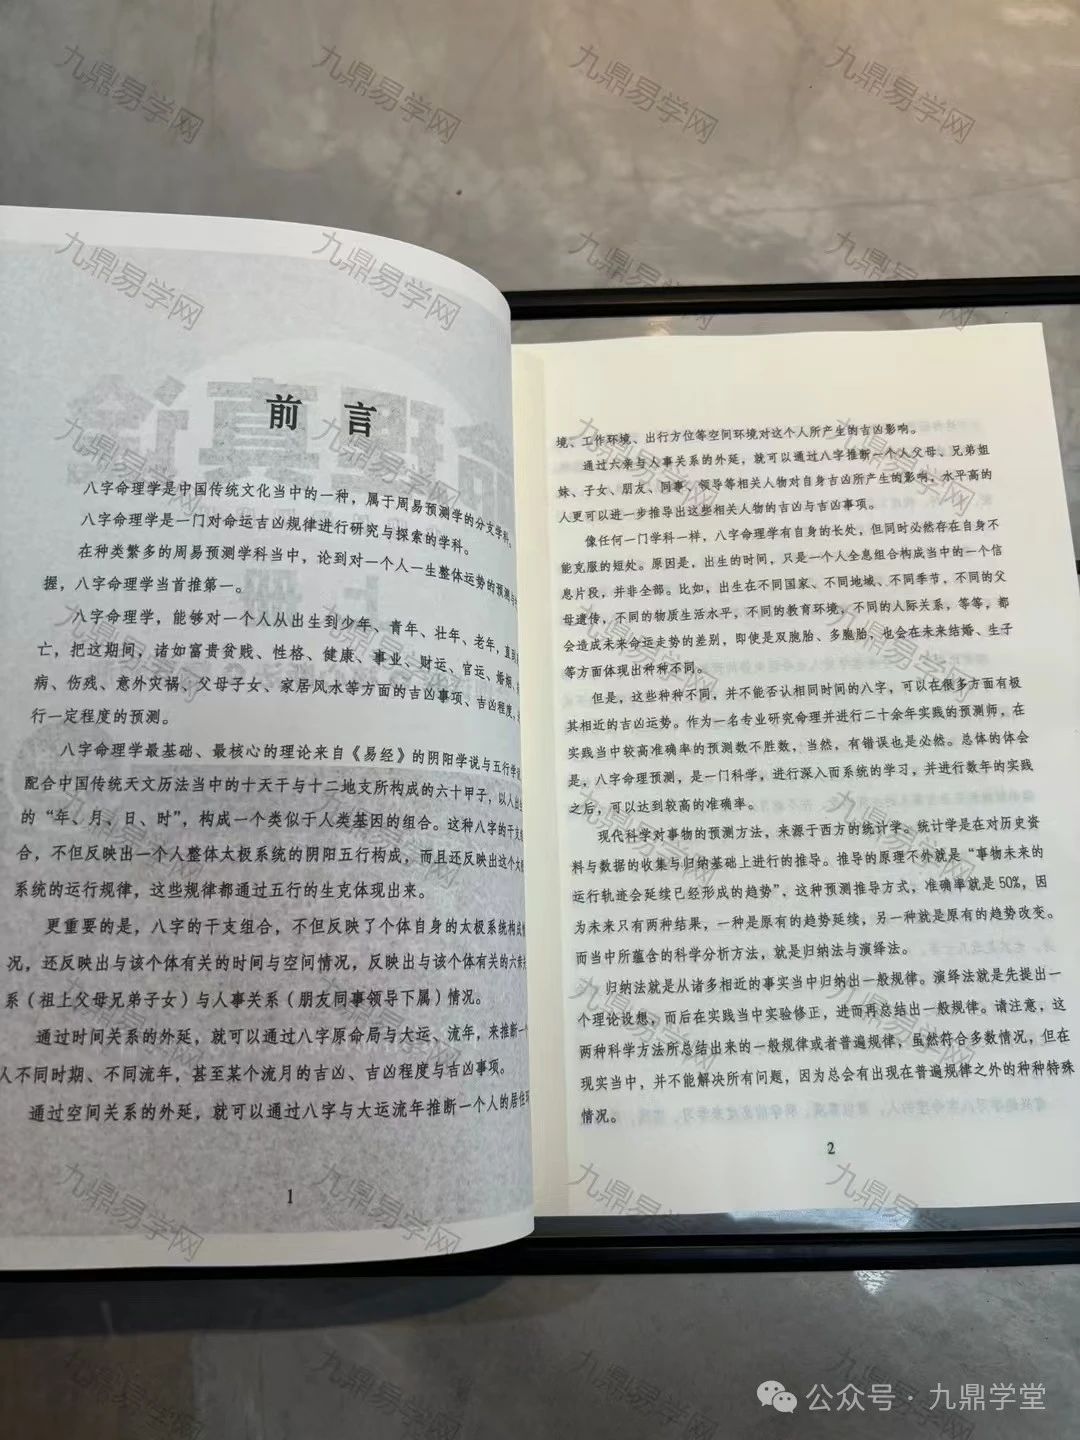 前言
八字命理学是中国传统文化当中的一种，属于周易预测学的分支学科。
八字命理学是一门对命运吉凶规律进行研究与探索的学科。
在种类繁多的周易预测学科当中，论到对一个人一生整体运势的预测与
握，八字命理学当首推第一。
八字命理学，能够对一个人从出生到少年、青年、壮年、老年，直到
亡，把这期间，诸如富贵贫贱、性格、健康、事业、财运、官运、婚姻、
病、伤残、意外灾祸、父母子女、家居风水等方面的吉凶事项、吉凶程度，
行一定程度的预测。
八字命理学最基础、最核心的理论来自《易经》的阴阳学说与五行学
配合中国传统天文历法当中的十天干与十二地支所构成的六十甲子，以人出
的“年、月、日、时”，构成一个类似于人类基因的组合。这种八字的干支
合，不但反映出一个人整体太极系统的阴阳五行构成，而且还反映出这个太
系统的运行规律，这些规律都通过五行的生克体现出来。
更重要的是，八字的干支组合，不但反映了个体自身的太极系统构成
况，还反映出与该个体有关的时间与空间情况，反映出与该个体有关的六亲
系（祖上父母兄弟子女）与人事关系（朋友同事领导下属）情况。
通过时间关系的外延，就可以通过八字原命局与大运、流年，来推断一
人不同时期、不同流年，甚至某个流月的吉凶、吉凶程度与吉凶事项。
通过空间关系的外延，就可以通过八字与大运流年推断一个人的居住环
1
境、工作环境、出行方位等空间环境对这个人所产生的吉凶影响。
通过六亲与人事关系的外延，就可以通过八字推断一个人父母、兄弟姐
妹、子女、朋友、同事、领导等相关人物对自身吉凶所产生的影响，水平高的
人更可以进一步推导出这些相关人物的吉凶与吉凶事项。
像任何一门学科一样，八字命理学有自身的长处，但同时必然存在自身不
能克服的短处。原因是，出生的时间，只是一个人全息组合构成当中的一个信
息片段，并非全部。比如，出生在不同国家、不同地域、不同季节，不同的父
母遗传，不同的物质生活水平，不同的教育环境，不同的人际关系，等等，都
会造成未来命运走势的差别，即使是双胞胎、多胞胎，也会在未来结婚、生子
等方面体现出种种不同。
但是，这些种种不同，并不能否认相同时间的八字，可以在很多方面有极
其相近的吉凶运势。作为一名专业研究命理并进行二十余年实践的预测师，在
实践当中较高准确率的预测数不胜数，当然，有错误也是必然。总体的体会
是，八字命理预测，是一门科学，进行深入而系统的学习，并进行数年的实践
之后，可以达到较高的准确率。
现代科学对事物的预测方法，来源于西方的统计学。统计学是在对历史资
料与数据的收集与归纳基础上进行的推导。推导的原理不外就是“事物未来的
运行轨迹会延续已经形成的趋势”，这种预测推导方式，准确率就是50%，因
为未来只有两种结果，一种是原有的趋势延续，另一种就是原有的趋势改变。
而当中所蕴含的科学分析方法，就是归纳法与演绎法。
归纳法就是从诸多相近的事实当中归纳出一般规律。演绎法就是先提出一
个理论设想，而后在实践当中实验修正，进而再总结出一般规律。请注意，这
两种科学方法所总结出来的一般规律或者普遍规律，虽然符合多数情况，但在
现实当中，并不能解决所有问题，因为总会有出现在普遍规律之外的种种特殊
情况。
2
九鼎易学网
公众号·九鼎学堂